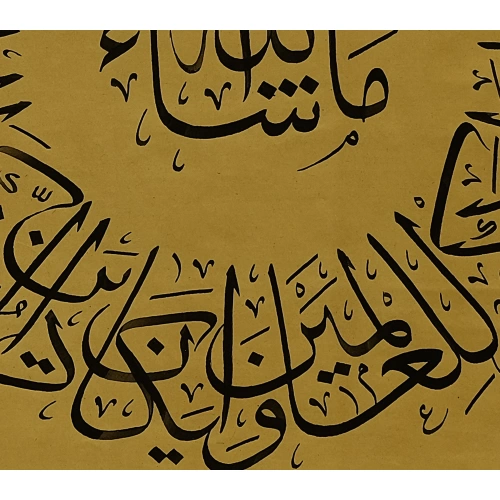 ما شاء الله
للعالمين وان يكاد الذين